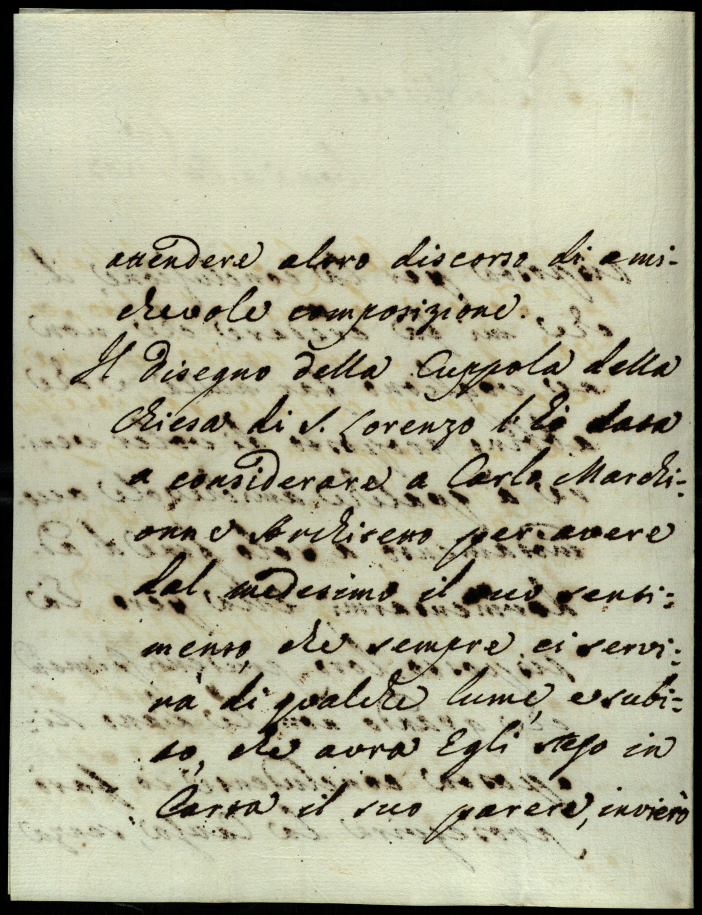 attendere altro discorso di ami-
chevole composizione.
Il disegno della Cuppola della
Chiesa di S. Lorenzo l'hò data
a considerare a Carlo Marchi-
onne Architetto per avere
dal medesimo il suo senti-
mento, che sempre ci servi-
rà di qualche lume, e subi-
to, che avrà Egli steso in
Carta il suo parere, invierò